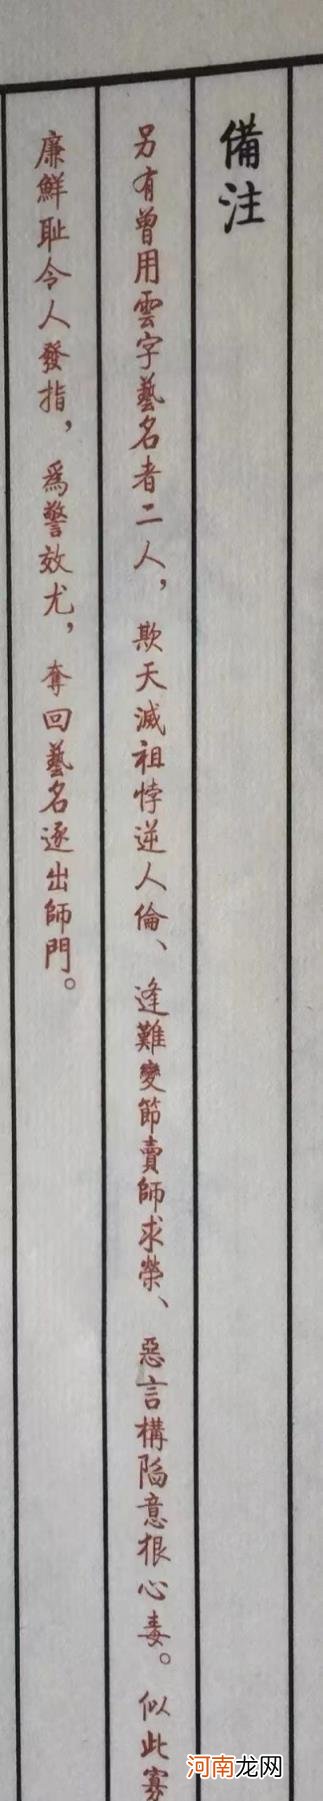 備注
另有曾用雲字藝名者二人，欺天滅祖悖逆人倫、逢難變節賣師求榮、惡言構陷意狠心毒。似此寡
廉鮮恥令人發指，為警效尤，奪回藝名逐出師門。
河南龙网